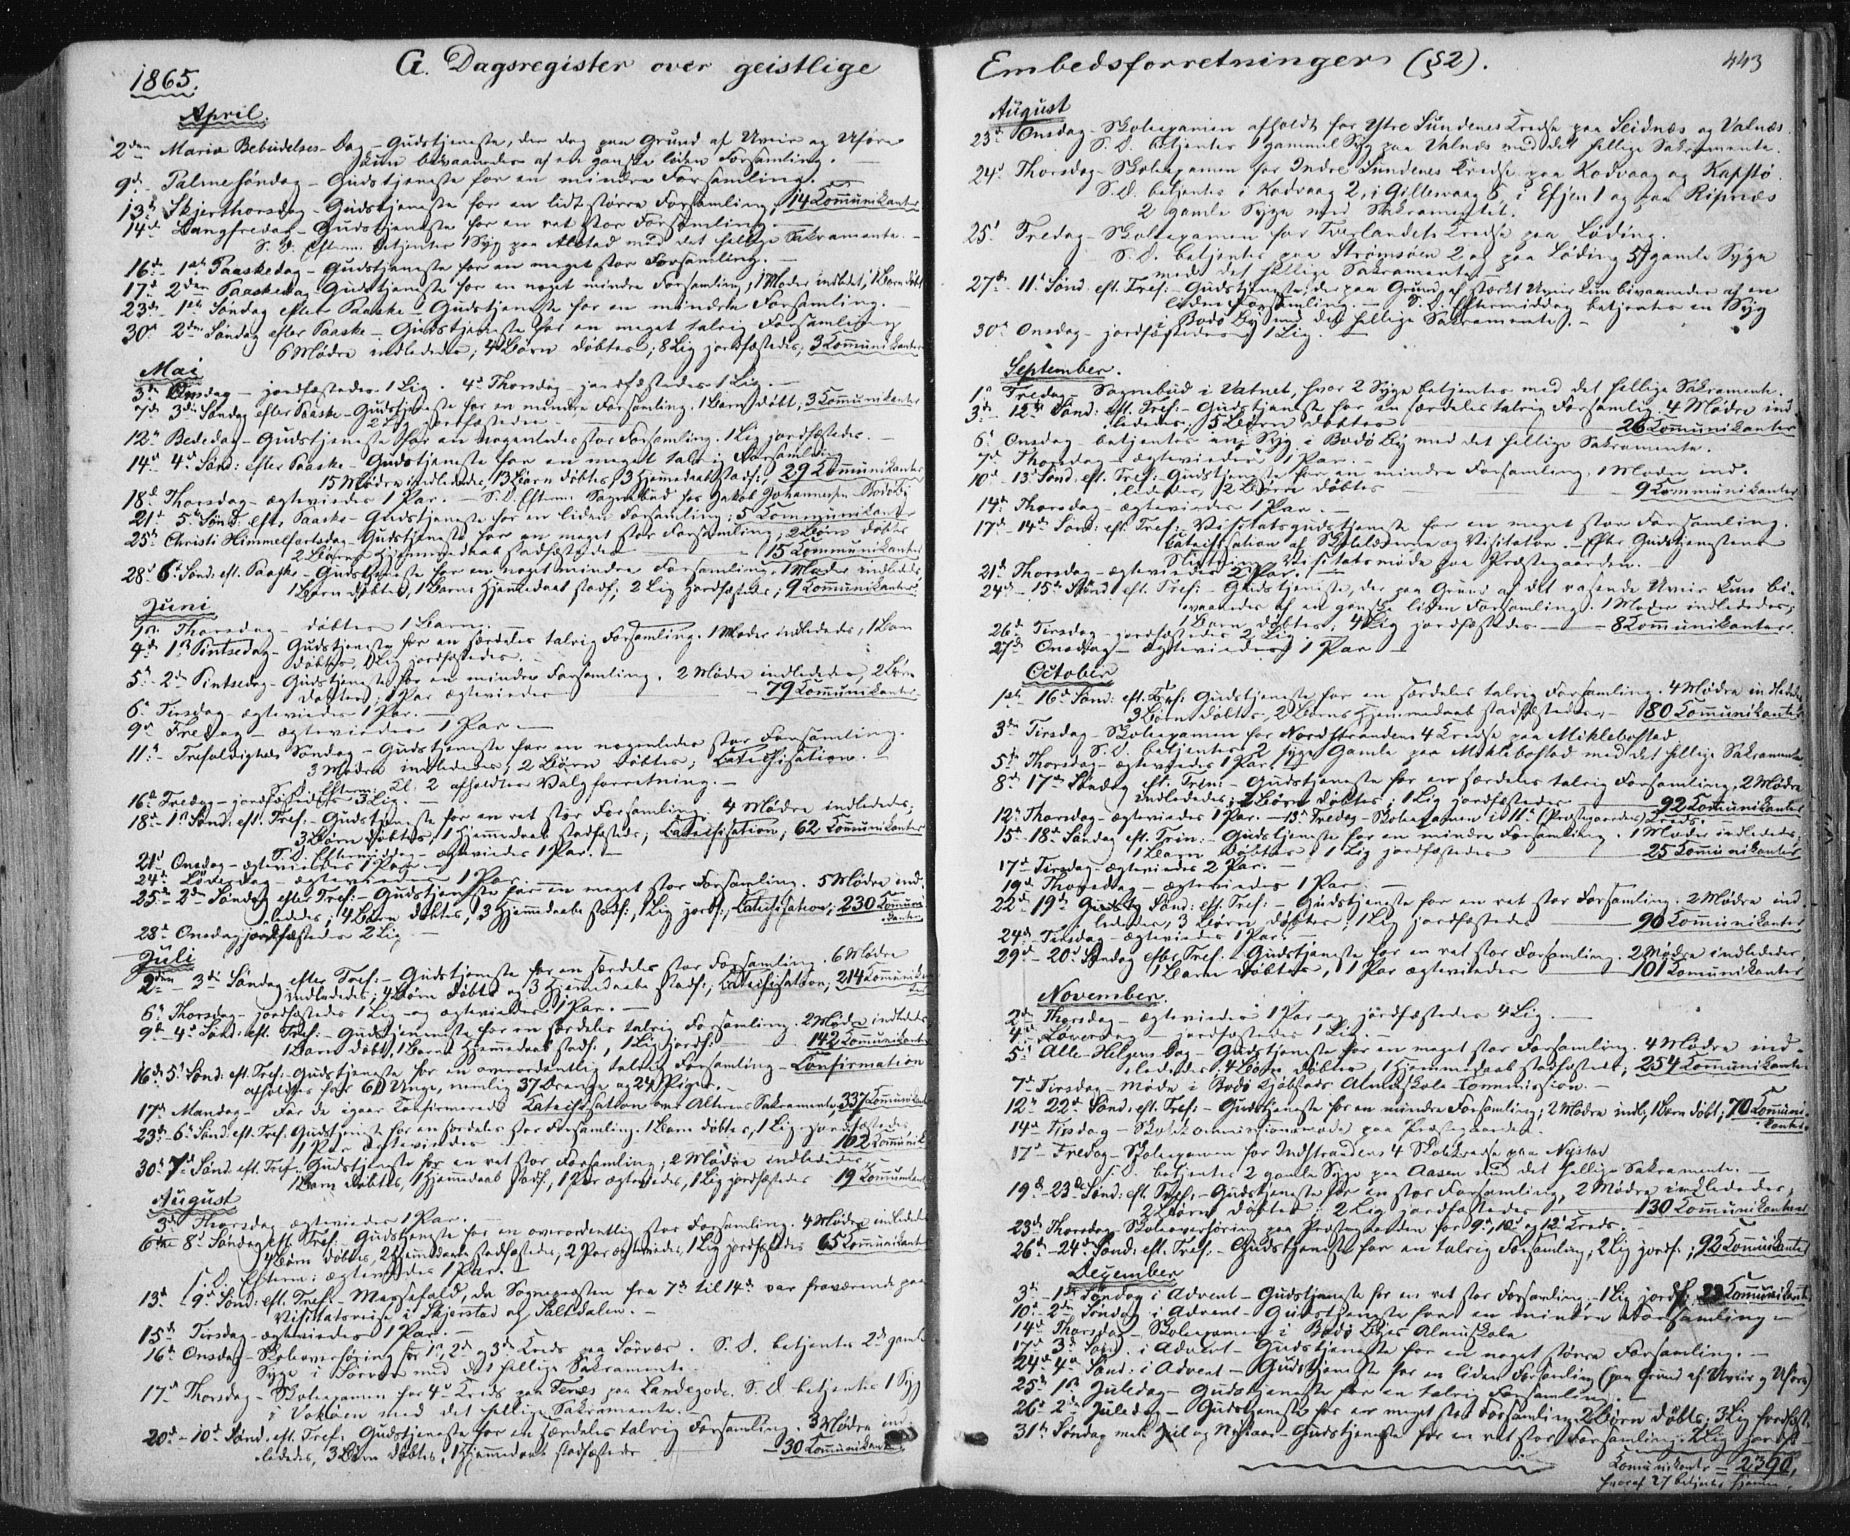 G. Dagsregister over geistlige
1865.
April.
2den Mariæ Bebudelses-Dag – Gudstjeneste, der dog paa Grund af Uveir og Uføre
kun bivaanedes af en ganske liden Forsamling.
9d Palmesøndag – Gudstjeneste for en mindre Forsamling.
13d Skjærthorsdag – Gudstjeneste for en lidt større Forsamling, 14 Communikanter
14d Langfredag – Gudstjeneste for en ret stor Forsamling –
S. D. Efterm. betjentes 1 Syg paa Alstad med det hellige Sakramente. –
16d – 1ste Paaskedag – Gudstjeneste for en meget stor Forsamling. –
17d – 2den Paaskedag Gudstjeneste for en noget mindre Forsamling, 1 Moder indledet, 1 Barn døbt
23d – 1ste Søndag efter Paaske – Gudstjeneste for en mindre Forsamling. –
30d 2den Søndag efter Paaske – Gudstjeneste for en meget talrig Forsamling
6 Mødre indledede; 4 Børn døbtes; 8 Lig jordfæstedes; 3 Communikanter
Mai
3d Onsdag – jordfæstedes 1 Lig. 4d Thorsdag – jordfæstedes 1 Lig. –
7d 3die Søndag efter Paaske – Gudstjeneste for en mindre Forsamling. 1 Barn døbt, 3 Communikanter
2 Lig jordfæstedes –
12d Bededag – Gudstjeneste for en nogenledes stor Forsamling. 1 Lig jordfæstedes. –
14d 4d Sønd: efter Paaske – Gudstjeneste for en meget talrig Forsamling
15 Mødre indledede, 13 Børn døbtes, 3 Hjemmedaab stadf:, 29 Communikanter
18d Thorsdag – ægteviedes 1 Par. – S. D. Efterm: Sognebud hos Jakob Johannesen Bodøby
21d 5te Sønd: eft. Paaske – Gudstjeneste for en liden Forsamling; 5 Communikanter
25d Christi Himmelfartsdag – Gudstjeneste for en meget stor Forsamling, 2 Børn døbtes
2 Børns Hjemmedaab stadfæstedes – 15 Communikanter
28d 6te Sønd. eft. Paaske – Gudstjeneste for en noget mindre Forsamling. 1 Moder indledes
1 Barn døbtes, 1 Barns Hjemmedaab stadf; 2 Lig jordfæstedes; 9 Communikanter
Juni
1ste Thorsdag – døbtes 1 Barn. –
4d 1ste Pintsedag – Gudstjeneste for en særdeles talrig Forsamling. 1 Moder indledede, 1 Barn
døbtes, 1 Lig jordfæstedes.
5d – 2den Pintsedag – Gudstjeneste for en mindre Forsamling. 2 Mødre indledede, 2 Børn
døbtes, 1 Par ægteviedes – 79 Communikanter
6d Tirsdag – ægteviedes 1 Par. –
9d Fredag – ægteviedes 1 Par. –
11d – Trefoldigheds Søndag – Gudstjeneste for en nogenledes stor Forsamling.
3 Mødre indledede, 2 Børn døbtes; Catechisation. –
S. D. Efterm: Kl. 2 afholdtes Valgforretning. –
16d Fredag – jordfæstedes 3 Lig. –
18d – 1ste Sønd. eft. Tref. – Gudstjeneste for en ret stor Forsamling. 4 Mødre indledede;
3 Børn døbtes, 1 Hjemmedaab stadfæstede, Catechisation, 62 Communikanter
S. D. Eftermiddag – ægteviedes 1 Par. –
21d Onsdag – ægteviedes 1 Par. –
24d Løverdag – ægteviedes 1 Par. –
25d – 2den Søndag efter Tref: – Gudstjeneste for en meget stor Forsamling. 5 Mødre ind-
ledede, 4 Børn døbtes, 3 Hjemmedaabe stadf:, 1 Lig jordf:, Catechisation, 230 Communi-
kanter
28d Onsdag jordfæstedes 2 Lig –
Juli
2den – 3die Søndag efter Tref: – Gudstjeneste for en særdeles stor Forsamling. 6 Mødre
indledede, 4 Børn døbtes og 3 Hjemmedaabe stadf:, Catechisation, 214 Communikan
6d Thorsdag – jordfæstedes 1 Lig – og ægteviedes 1 Par. –
9d – 4d Sønd: eft. Tref: – Gudstjeneste for en særdeles talrig Forsamling. 2 Mødre indledede
1 Barn døbt, 1 Barns Hjemmedaab stadf., 1 Lig jordf: – 142 Communikanter
16d 5te Sønd: eft. Tref: – Gudstjeneste for en overordentlig talrig Forsamling – Confirmation
afholdtes for 61 Unge, nemlig 37 Drenge og 24 Piger. –
17d Mandag – For de igaar Confirmerede Catechisation over Alterens Sakramente, 337 Communikant
23d 6te Sønd: eft. Tref. Gudstjeneste for en særdeles stor Forsamling. 1 Barn døbtes, 1 Lig jordfæstedes
1 Par ægteviedes – 102 Communik
30d 7d Sønd. eft. Tref. – Gudstjeneste for en ret stor Forsamling; 2 Mødre indledede –
1 Barn døbtes, 1 Hjemmedaab stadf., 1 Par ægteviedes, 1 Lig jordfæstedes – 19 Communikant
August
3d Thorsdag ægteviedes 1 Par. –
6te 8d Søndag eft. Tref. – Gudstjeneste for en overordentlig stor Forsamling. 4 Mødre indledede
4 Børn døbtes, 2 Hjemmedaabe stadfæstedes, 2 Par ægteviedes, 1 Lig jordfæstedes 65 Communikanter
S. D. Efterm: ægteviedes 1 Par. –
13d – 9d Sønd: eft. Tref: – Messefald, da Sognepresten fra 7d til 14d var fraværende paa
Visitatsreise i Skjerstad og Saltdalen. –
15d Tirsdag – ægteviedes 1 Par. –
16d Onsdag – Skoleoverhøring for 1ste, 2d og 3d Kreds paa Sørvær. S. D. betjentes 2d gamle
Syge i Sørvær med det hellige Sakramente. –
17d Thorsdag – Skoleexamen for 4d Kreds paa Fenes paa Landegode. S. D. betjentes 1 Syg
i med det hellige Sakramente. –
20d – 10d Sønd: eft. Tref: Gudstjeneste for en særdeles talrig Forsamling. 3 Mødre ind-
ledede, 3 Børn døbtes, 1 Hjemmedaab stadfæstede – 30 Communikanter
Embedsforretninger (§2).
443
August
23d Onsdag – Skoleexamen afholdt for Ytre Sundenes Kreds paa Seidnæs og Valnæs.
S. D. betjentes 1 gammel Syg paa Valnæs med det hellige Sakramente.
24d Thorsdag – Skoleexamen for Indre Sundenes Kreds paa Kodvaag og Kapstø.
S. D. betjentes i Kodvaag 2, i Gillesvaag 5, i Efjen 1 og paa Ripnæs
2 gamle Syge med Sakramentet.
25d Fredag – Skoleexamen for Tverlandets Kreds paa Løding.
S. D. betjentes paa Strømsøen 2 og paa Løding 5 gamle Syge
med det hellige Sakramente –
27de – 11d Sønd. eft. Tref: – Gudstjeneste, der paa Grund af stærkt Uveir kun bivaanedes af en
liden Forsamling. – S. D. Eftermiddag betjentes en Syg
i Bodø By med det hellige Sakramente. –
30d Onsdag – jordfæstedes 1 Lig. –
September.
1ste Fredag Sognebud i Vatnet, hvor 2 Syge betjentes med det hellige Sakramente.
3d – 12te Sønd: eft. Tref: – Gudstjeneste for en særdeles talrig Forsamlig. 4 Mødre ind-
ledede, 5 Børn døbtes – 26 Communikanter
6d Onsdag – betjentes en Syg i Bodø By med det hellige Sakramente.
7d Thorsdag – ægteviedes 1 Par. –
10d – 13 Sønd. eft. Tref: Gudstjeneste for en mindre Forsamling. 1 Moder ind-
ledede, 2 Børn døbtes – 9 Communikanter
14d Thorsdag – ægteviedes 1 Par. –
17d – 14d Sønd: eft. Tref: – Visitatsgudstjeneste for en meget stor Forsamling.
Catechisation af Skolelærerne og Visitator. – Efter Gudstjenesten
Visitatsmøde paa Præstegaarden. –
21d Thorsdag – ægteviedes 2 Par. –
24d – 15d Sønd eft. Tref: – Gudstjeneste, der paa Grund af det rasende Uveir kun bi-
vaanedes af en ganske liden Forsamling. 1 Moder indledede;
1 Barn døbtes, 4 Lig jordfæstedes – 8 Communikanter.
26d Tirsdag – jordfæstedes 2 Lig. –
27d Onsdag – ægteviedes 1 Par –
October
1ste 16d Sønd: eft. Tref: Gudstjeneste for en særdeles talrig Forsamling. 4 Mødre indledede
3 Børn døbtes, 2 Børns Hjemmedaab stadfæstedes, – 80 Communikanter
3d Tirsdag – Skoleexamen for Nordstrandens 4 Kredse paa Miklebostad.
S. D. betjentes 2 syge Gamle paa Miklebostad med det hellige Sakramente
5d Thorsdag – ægteviedes 1 Par. –
8d 17d Søndag eft. Tren: – Gudstjeneste for en særdeles talrig Forsamling; 2 Mødre
indledede; 2 Børn døbtes; 1 Lig jordfæstedes – 92 Communikanter
12d Thorsdag – ægteviedes 1 Par. – 13d Fredag – Skoleexamen i 11d (Præstegaardens) Kreds. –
15d – 18d Søndag eft. Trin: – Gudstjeneste for en mindre Forsamling. 1 Moder indledede,
1 Barn døbtes, 1 Lig jordfæstedes – 25 Communikanter
17d Tirsdag – ægteviedes 2 Par. –
19d Thorsdag – ægteviedes 1 Par. –
22d – 19d Sønd: eft. Tref: – Gudstjeneste for en ret stor Forsamling. 2 Mødre ind-
ledede, 3 Børn døbtes, 1 Lig jordfæstedes – 90 Communikanter
24d Tirsdag – ægteviedes 1 Par. –
29d – 20d Søndag efter Tref. – Gudstjeneste for en ret stor Forsamling. 2 Mødre indledede,
1 Barn døbtes, 1 Par ægteviedes – 101 Communikanter
November.
2d Thorsdag – ægteviedes 1 Par og jordfæstedes 4 Lig. –
4d Løverdag – jordfæstedes 1 Lig. –
5d Alle-Helgens Dag – Gudstjeneste for en meget stor Forsamling. 4 Mødre ind-
ledede, 4 Børn døbtes, 1 Hjemmedaab stadfæstede; 254 Communikanter
7d Tirsdag – Møde i Bodø Kjøbstads Almueskole-Commission. –
12d 22d Sønd: eft. Tref: – Gudstjeneste for en mindre Forsamling; 2 Mødre indl; 1 Barn døbt; 70 Communi-
kanter
14d Tirsdag – Skolekommissionsmøde paa Præstegaarden.
17d Fredag – Skoleexamen for Indstrandens 4 Skolekredse paa Nystad
S. D. betjentes 2 gamle Syge paa Aasen med det hellige Sakramente. –
19d – 23d Sønd: eft. Tref: – Gudstjeneste for en stor Forsamling, 2 Mødre indledede,
2 Børn døbtes, 2 Lig jordfæstedes – 130 Communikanter
23d Thorsdag Skoleoverhøring paa Præstegaarden for 9d, 10d og 12d Kreds. –
26d – 24d Sønd: eft. Tref: – Gudstjeneste for en talrig Forsamling, 2 Lig jordf:; 92 Communikanter
December
3d – 1ste Søndag i Advent – Gudstjeneste for en ret stor Forsamling. 1 Lig jordf: 23 Communikant
10d – 2den Søndag i Advent – Gudstjeneste for en mindre Forsamling –
14d Thorsdag – Skoleexamen i Bodø Byes Almueskole
17d 3d Sønd. i Advent – Gudstjeneste for en noget større Forsamling. –
24d – 4d Sønd: i Advent – Gudstjeneste for en liden Forsamling (paa Grund af Uveir og Uføre)
25d 1ste Juledag – Gudstjeneste for en talrig Forsamling
26d 2den Juledag – Gudstjeneste for en meget stor Forsamling. 2 Børn døbtes, 3 Lig jordfæst.
31te Søndag mell. Jul og Nytaar – Gudstjeneste for en ret stor Forsamling. 2 Lig jordf:
Communikanter = 2390,
hvoraf 27 betjentes hjemme.